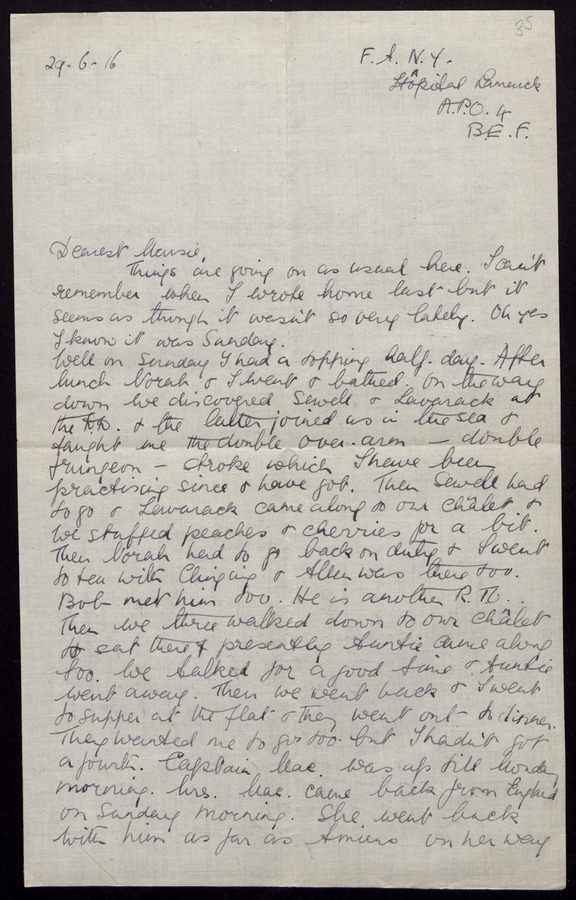 35
29-6-16
F.A.N.Y.
Hôpital Lamarck
A.P.O. 4
B.E.F.
Dearest Mousie,
Things are going on as usual here. I can't
remember when I wrote home last but it
seems as though it wasn't so very lately. Oh yes
I know it was Sunday.
Well on Sunday I had a topping half-day. After
lunch Norah & I went & bathed, on the way
down we discovered Sewell & Lavarack at
the & the latter joined us in the sea &
taught me the double over-arm – double
trudgeon – stroke which I have been
practising since & have got. Then Sewell had
to go & Lavarack came along to our châlet &
we stuffed peaches & cherries for a bit.
Then Norah had to go back on duty & I went
to tea with & Allen was there too.
Bob met him too. He is another R.T.O.
Then we three walked down to our châlet
to eat there & presently Auntie came along
too. We talked for a good time & Auntie
went away. Then we went back & I went
to supper at the flat & they went out to dinner.
They wanted me to go too but I hadn't got
a fourth. Captain Mac. was up till Monday
morning. Mrs. Mac. came back from England
on Sunday morning. She went back
with him as far as Amiens on her way